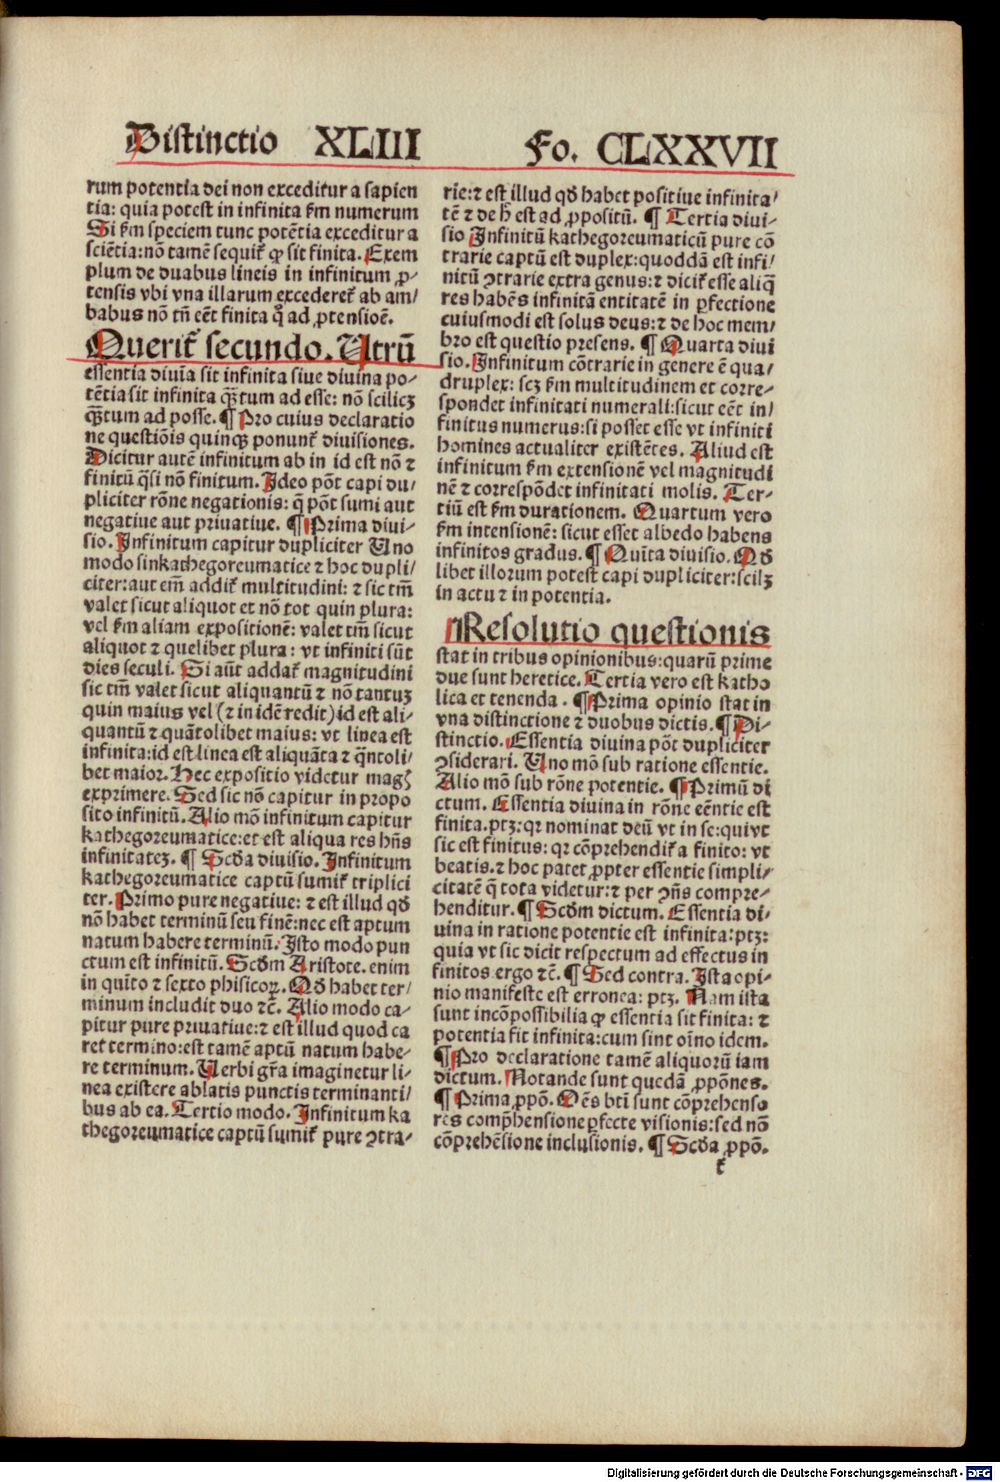 Distinctio XLIII Fo. CLXXVII
rum potentia dei non exceditur a sapien
tia: quia potest in infinita ẜm numerum
Si ẜm speciem tunc potẽtia exceditur a
sciẽtia: nõ tamẽ sequit̃ ꝙ sit finita. Exem
plum de duabus lineis in infinitum ꝓ⸗
tensis vbi vna illarum excederet̃ ab am/
babus nõ tñ eẽt finita q̃ ad ꝓtensioẽ.
Querit̃ secundo. Utrũ
essentia diuĩa sit infinita siue diuina po⸗
tẽtia sit infinita qȝ̃tum ad esse: nõ scilicȝ
qȝ̃tum ad posse. ¶ Pro cuius declaratio
ne questiõis quinqȝ ponunt̃ diuisiones.
Dicitur autẽ infinitum ab in id est nõ ⁊
finitũ q̃si nõ finitum. Ideo põt capi du/
pliciter rõne negationis: q̃ põt sumi aut
negatiue aut priuatiue. ¶ Prima diui⸗
sio. Infinitum capitur dupliciter Uno
modo sinkathegoreumatice ⁊ hoc dupli/
citer: aut em̃ addit̃ multitudini: ⁊ sic tm̃
valet sicut aliquot et nõ tot quin plura:
vel ẜm aliam expositionẽ: valet tm̃ sicut
aliquot ⁊ quelibet plura: vt infiniti sũt
dies seculi. Si aũt addat̃ magnitudini
sic tm̃ valet sicut aliquantũ ⁊ nõ tantuȝ
quin maius vel (⁊ in idẽ redit) id est ali⸗
quantũ ⁊ quãtolibet maius: vt linea est
infinita: id est linea est aliquãta ⁊ q̃ntoli/
bet maior. Hec expositio videtur magꝭ
exprimere. Sed sic nõ capitur in propo
sito infinitũ. Alio mõ infinitum capitur
kathegoreumatice: et est aliqua res hñs
infinitateȝ. ¶ Scd̃a diuisio. Infinitum
kathegoreumatice captũ sumit̃ triplici
ter. Primo pure negatiue: ⁊ est illud qd̃
nõ habet terminũ seu finẽ: nec est aptum
natum habere terminũ. Isto modo pun
ctum est infinitũ. Scd̃m Aristote. enim
in quĩto ⁊ sexto phisicoꝝ. Qd̃ habet ter/
minum includit duo ⁊c̃. Alio modo ca⸗
pitur pure priuatiue: ⁊ est illud quod ca
ret termino: est tamẽ aptũ natum habe⸗
re terminum. Uerbi gr̃a imaginetur li⸗
nea existere ablatis punctis terminanti/
bus ab ea. Tertio modo. Infinitum ka
thegoreumatice captũ sumit̃ pure ꝯtra⸗
rie: ⁊ est illud qd̃ habet positiue infinita/
tẽ ⁊ de h̃ est ad ꝓpositũ. ¶ Tertia diui⸗
sio Infinitũ kathegoreumaticũ pure cõ
trarie captũ est duplex: quoddã est infi/
nitũ ꝯtrarie extra genus: ⁊ dicit̃ esse aliq̃
res habẽs infinitã entitatẽ in ꝑfectione
cuiusmodi est solus deus: ⁊ de hoc mem/
bro est questio presens. ¶ Quarta diui
sio. Infinitum cõtrarie in genere ẽ qua/
druplex: scȝ ẜm multitudinem et corre⸗
spondet infinitati numerali: sicut eẽt in/
finitus numerus: si posset esse vt infiniti
homines actualiter existẽtes. Aliud est
infinitum ẜm extensionẽ vel magnitudi
nẽ ⁊ correspõdet infinitati molis. Ter⸗
tiũ est ẜm durationem. Quartum vero
ẜm intensionẽ: sicut esset albedo habens
infinitos gradus. ¶ Quĩta diuisio. Qd̃
libet illorum potest capi dupliciter: scilȝ
in actu ⁊ in potentia.
¶ Resolutio questionis
stat in tribus opinionibus: quarũ prime
due sunt heretice. Tertia vero est katho
lica et tenenda. ¶ Prima opinio stat in
vna distinctione ⁊ duobus dictis. ¶ Di⸗
stinctio. Essentia diuina põt dupliciter
ꝯsiderari. Uno mõ sub ratione essentie.
Alio mõ sub rõne potentie. ¶ Primũ di
ctum. Essentia diuina in rõne eẽntie est
finita. ptȝ: qꝛ nominat deũ vt in se: qui vt
sic est finitus: qꝛ cõprehendit̃ a finito: vt
beatis. ⁊ hoc patet ꝓpter essentie simpli⸗
citatẽ q̃ tota videtur: ⁊ per ꝯñs compre⸗
henditur. ¶ Scd̃m dictum. Essentia di⸗
uina in ratione potentie est infinita: ptȝ:
quia vt sic dicit respectum ad effectus in
finitos ergo ⁊c̃. ¶ Sed contra. Ista opi⸗
nio manifeste est erronea: ptȝ. Nam ista
sunt incõpossibilia ꝙ essentia sit finita: ⁊
potentia sit infinita: cum sint oĩno idem.
¶ Pro declaratione tamẽ aliquorũ iam
dictum. Notande sunt quedã ꝓpõnes.
¶ Prima ꝓpõ. Oẽs bt̃i sunt cõprehenso
res comp̃hensione ꝑfecte visionis: sed nõ
cõprehẽsione inclusionis. ¶ Scd̃a ꝓpõ.
Digitalisierung gefördert durch die Deutsche Forschungsgemeinschaft - DFG